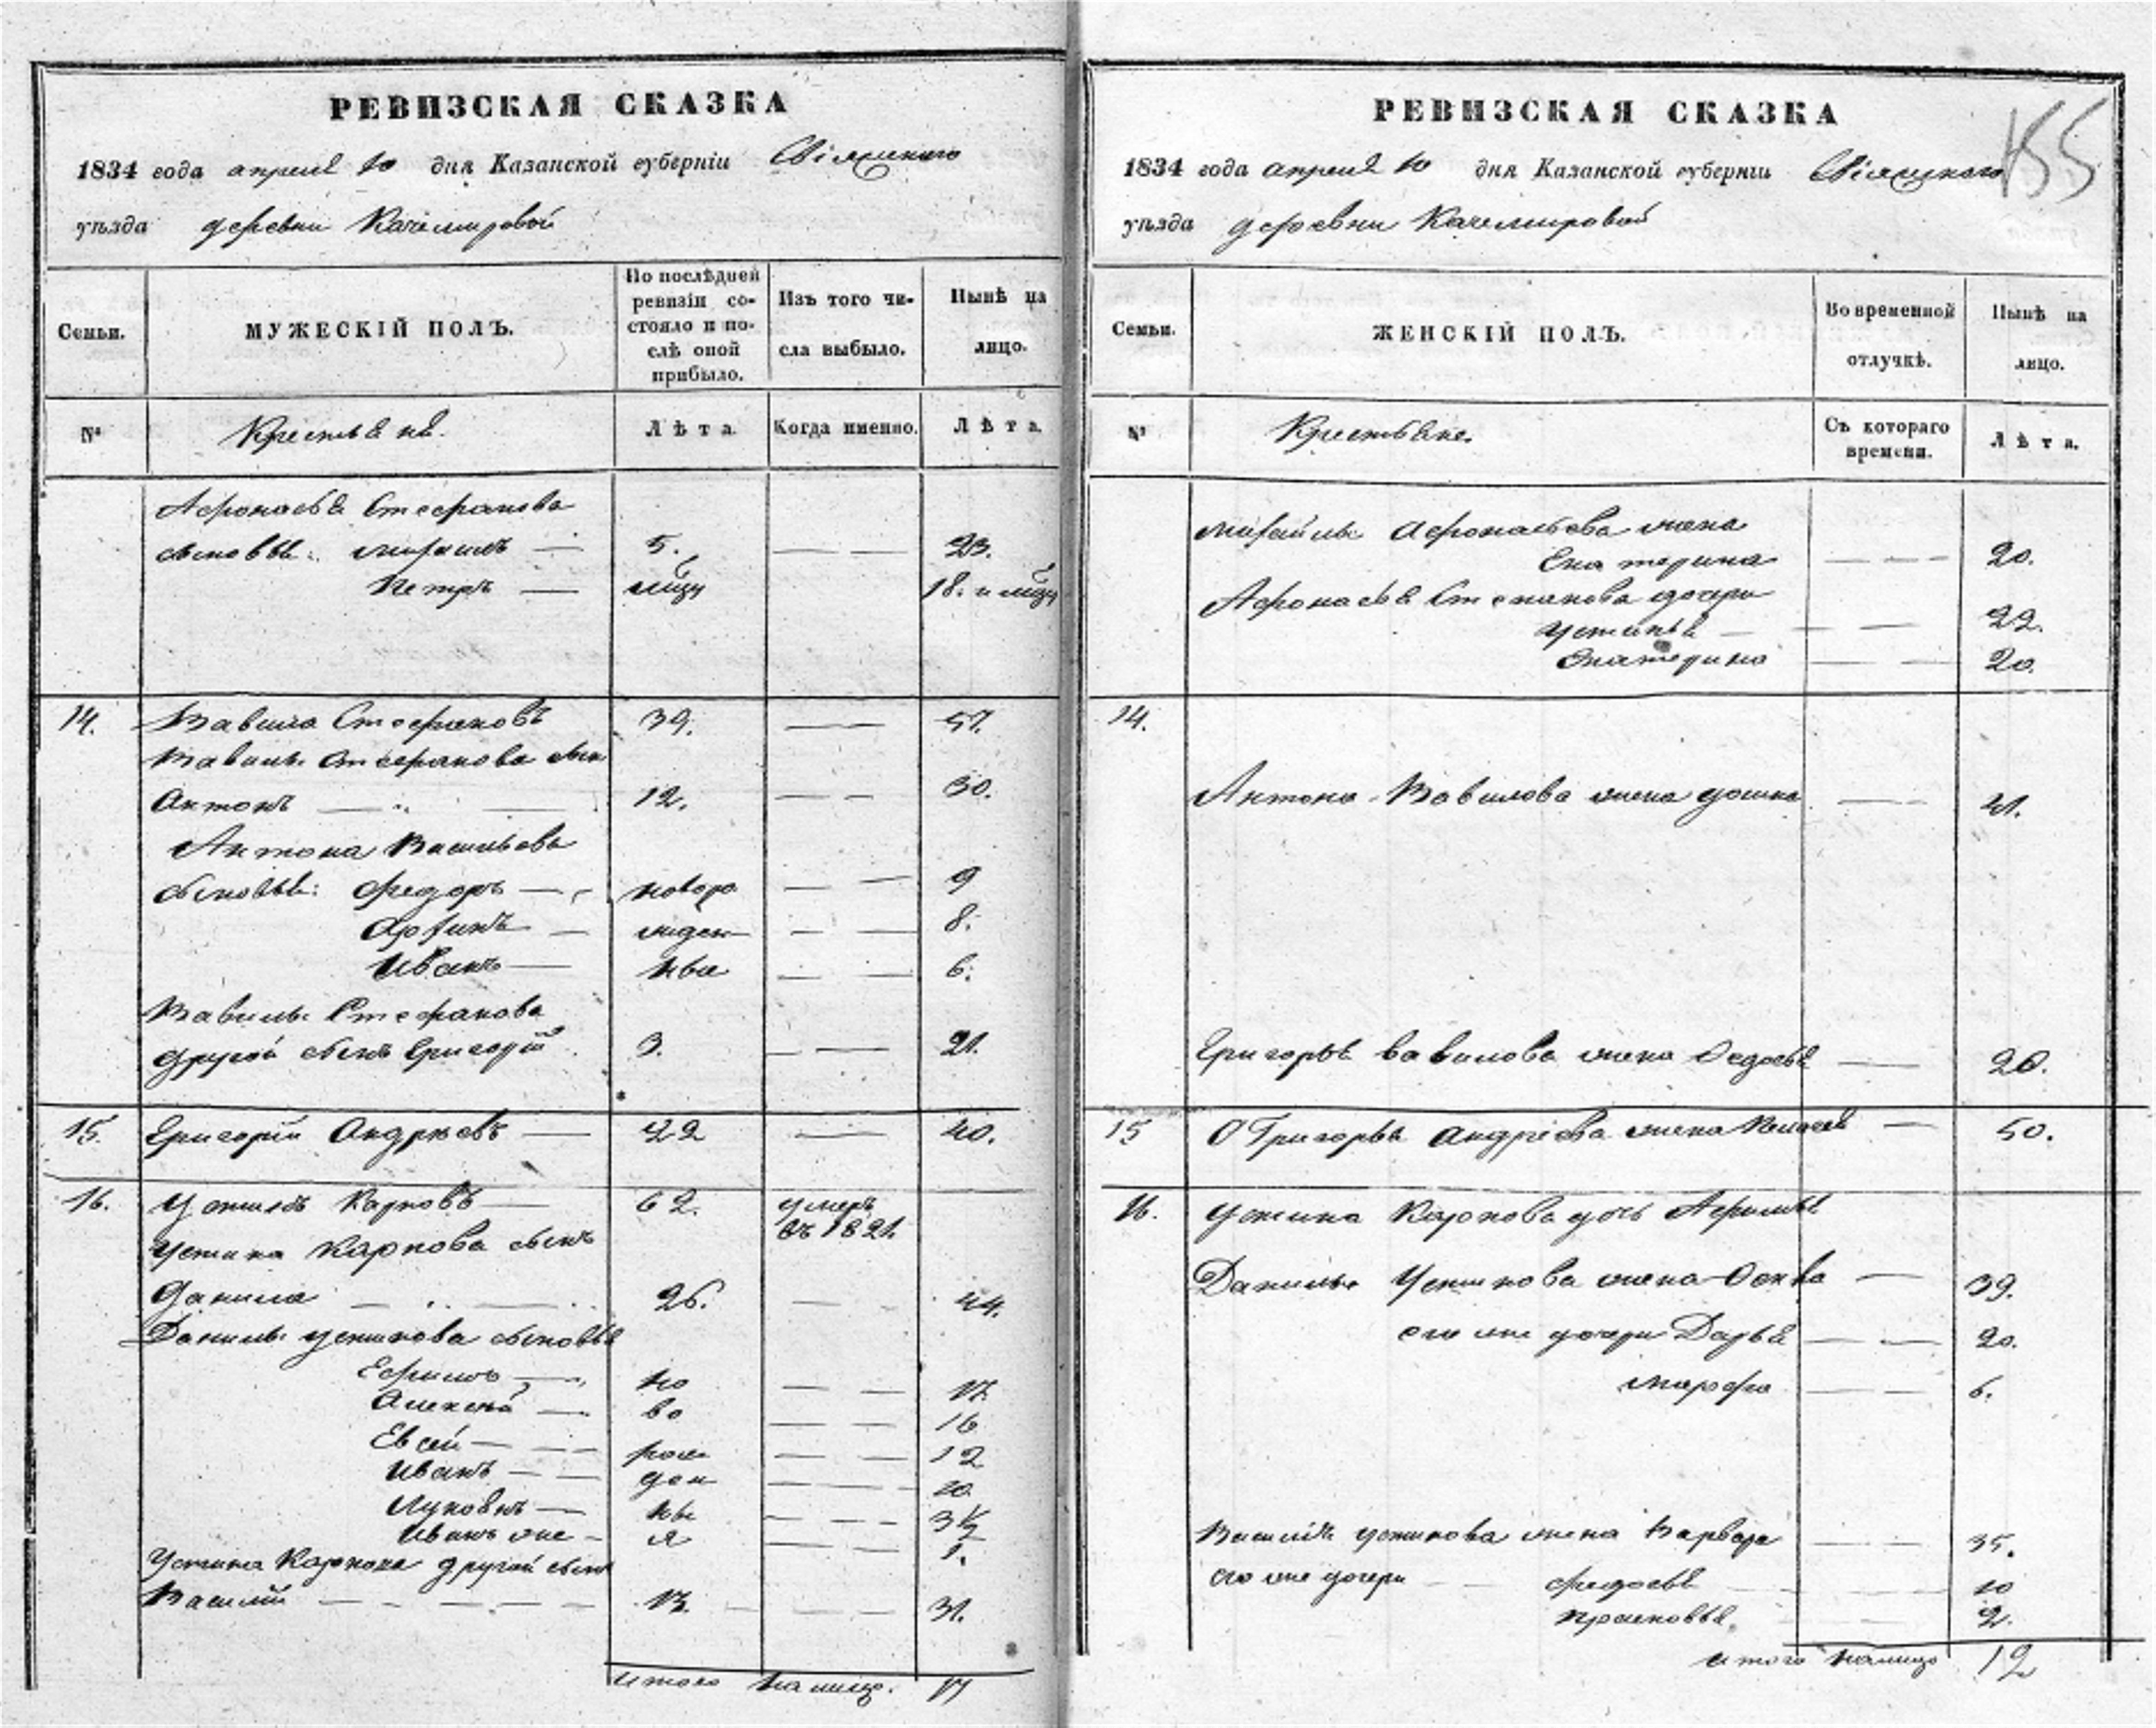 РЕВИЗСКАЯ СКАЗКА
1834 года апреля 10 дня Казанской губернiи Свiяжскаго
уѣзда деревни Качемировой
Семьи.
МУЖЕСКІЙ ПОЛЪ.
По послѣдней ревизіи со-
стояло и по-
слѣ оной
прибыло.
Изъ того чи-
сла выбыло.
Нынѣ на
лицо.
№
Крестьяне.
Лѣта.
Когда именно.
Лѣта.
Афонасья Стефанова
сыновья:
5.
23.
Петръ
18.
14. Вавила Стефановъ 39. 57.
Вавилы Стефанова сын
Антонъ 12. 30.
Антона
сыновья: Федоръ новоро 9
8.
Иванъ 6.
Вавилы Стефанова
другой сынъ Григорій 3. 21.
15. Григорій Андрѣевъ 22 40.
16. Устинъ Карповъ 62. умеръ
въ 1821.
Устина Карпова сынъ
Данила 26. 44.
Данилы Устинова сыновья
Ефимъ но 17.
Алексѣй во 16
Евсей рож 12
Иванъ ден 10
ны 3½
Иванъ же я 1.
Устина Карпова другой сынъ
Василій 13. 31.
итого налицо. 17
РЕВИЗСКАЯ СКАЗКА
155
1834 года апреля 10 дня Казанской губернiи Свiяжскаго
уѣзда деревни Качемировой
Семьи.
ЖЕНСКІЙ ПОЛЪ.
Во временной
отлучкѣ.
Нынѣ на
лицо.
№
Крестьяне.
Съ котораго
времени.
Лѣта.
Афонасьева жена
Екатерина 20.
Афонасья Степанова дочери
Устинья 22.
Екатерина 20.
14.
Антона Вавилова жена
Григорья Вавилова жена Федосья 20.
15 Григорья Андрѣева жена 50.
16. Устина Карпова дочь
Данилы Устинова жена 39.
его же дочери Дарья 20.
Марфа 6.
Василья Устинова жена Варвара 35.
его же дочери Федосья 10
Прасковья 2.
итого налицо 12